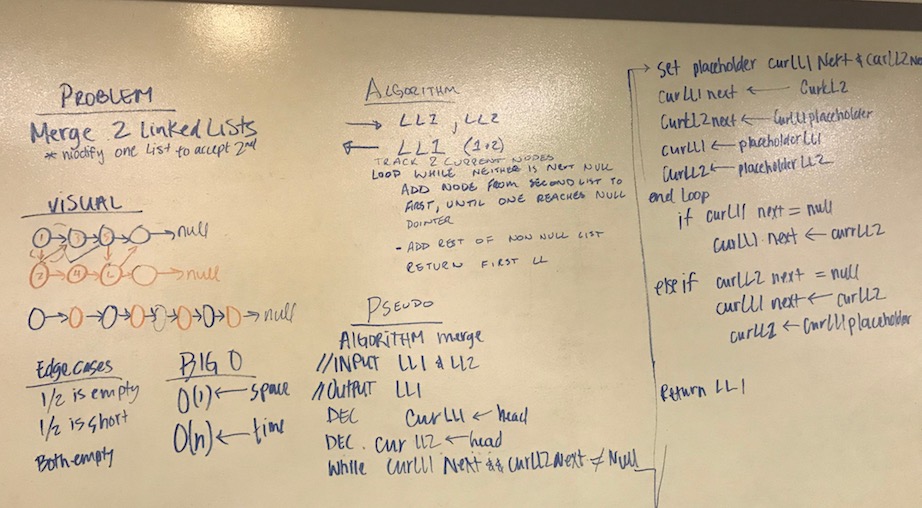 PROBLEM
Merge 2 Linked Lists
* modify one List to accept 2nd
VISUAL
1 3 5 → null
2 4 6 → null
→ null
Edge cases
1/2 is empty
1/2 is short
Both empty
BIG O
O(1) ← space
O(n) ← time
ALGORITHM
→ LL1, LL2
← LL1 (1+2)
TRACK 2 CURRENT NODES
LOOP WHILE NEITHER IS NEXT NULL
ADD NODE FROM SECOND LIST TO
FIRST, UNTIL ONE REACHES NULL
POINTER
- ADD REST OF NON NULL LIST
RETURN FIRST LL
PSEUDO
ALGORITHM merge
//INPUT LL1 & LL2
//OUTPUT LL1
DEC CurLL1 ← head
DEC. cur LL2 ← head
While CurLL1 Next && CurLL2 Next ≠ Null
→ set placeholder curLL1 Next & curLL2 Ne
curLL1 next ← CurLL2
CurLL2 next ← CurLL1 placeholder
curLL1 ← placeholder LL1
CurLL2 ← placeholder LL2
end Loop
if curLL1 next = null
curLL1.next ← currLL2
else if curLL2 next = null
curLL1 next ← curLL2
← CurLL1 placeholder
Return LL1